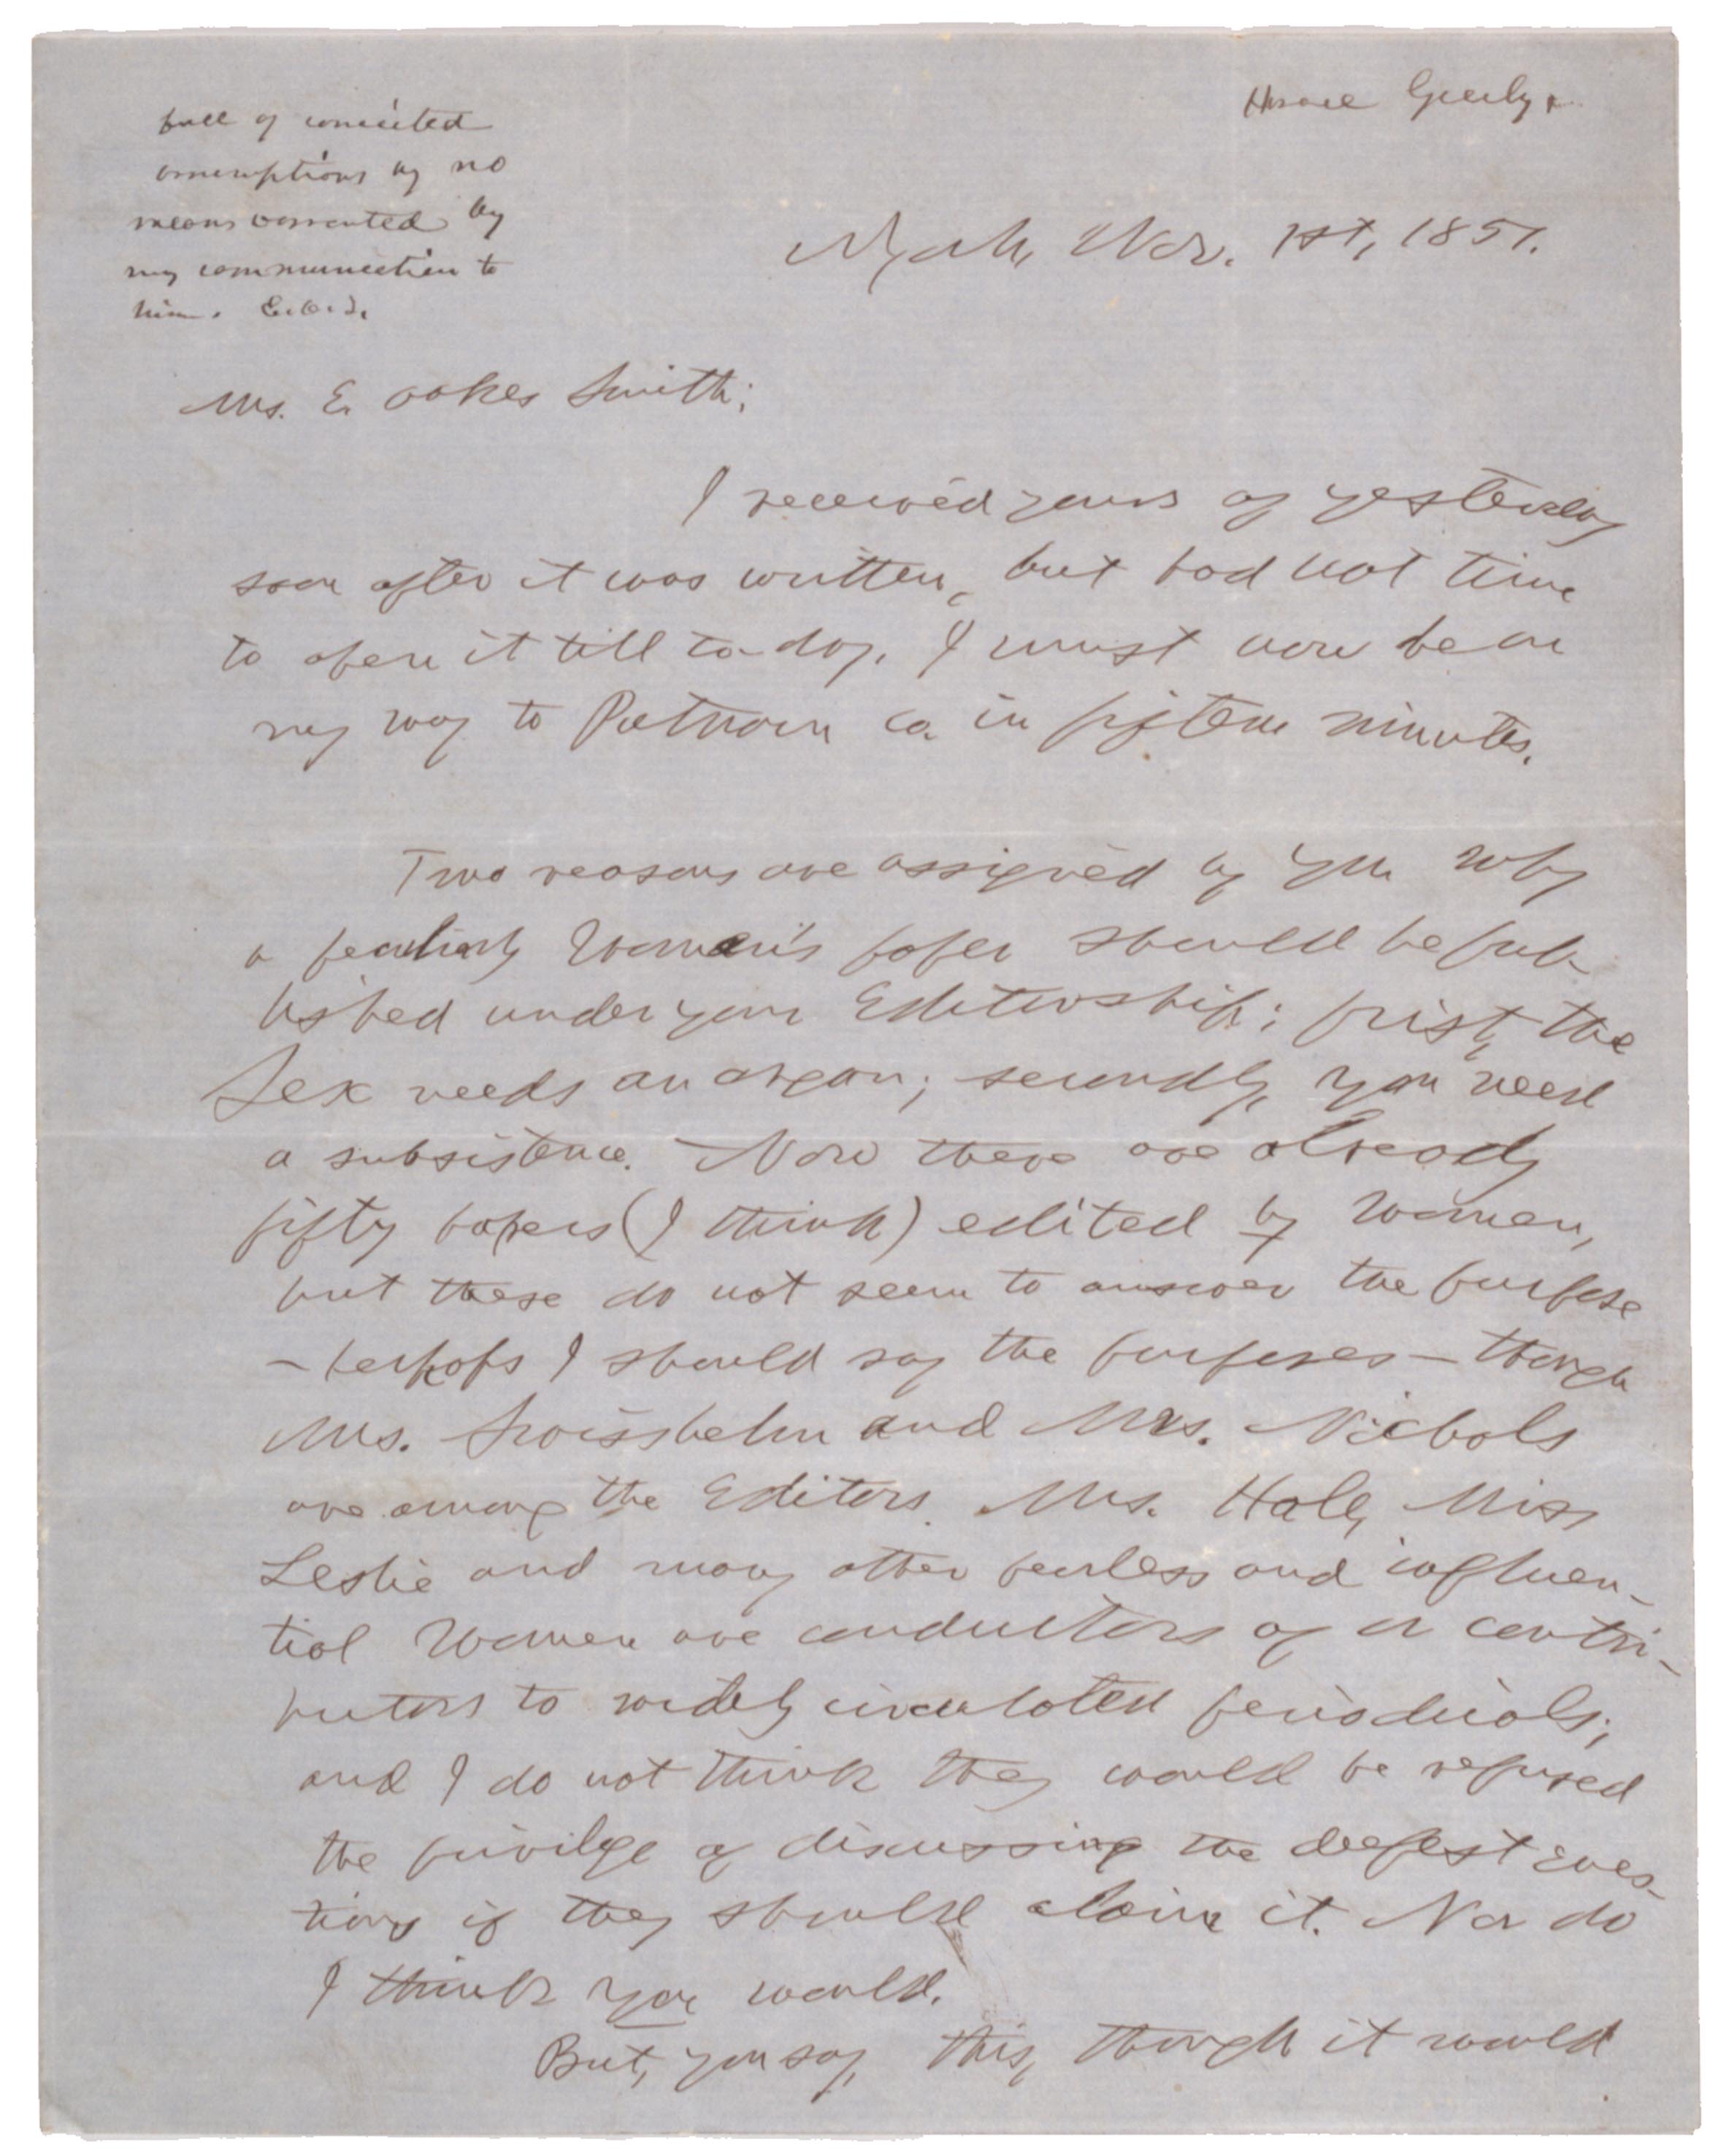 Horace Greely.
full of conceited
assumptions by no
means warranted by
my communication to
him. E. O. S.
N. York, Nov. 1st, 1851.
Mrs. E. Oakes Smith:
I received yours of yesterday
soon after it was written, but had not time
to open it till to-day. I must now be on
my way to Putnam Co. in fifteen minutes.
Two reasons are assigned by you why
a peculiarly Woman's paper should be pub-
lished under your Editorship; first, the
Sex needs an organ; secondly, you need
a subsistence. Now there are already
fifty papers (I think) edited by Women,
but these do not seem to answer the purpose
— perhaps I should say the purposes — though
Mrs. Swisshelm and Mrs. Nichols
are among the Editors. Mrs. Hale, Miss
Leslie and many other fearless and influen-
tial Women are conductors of or contri-
butors to widely circulated periodicals;
and I do not think they would be refused
the privilege of discussing the deepest ques-
tions if they should claim it. Nor do
I think you would.
But, you say, this, though it would